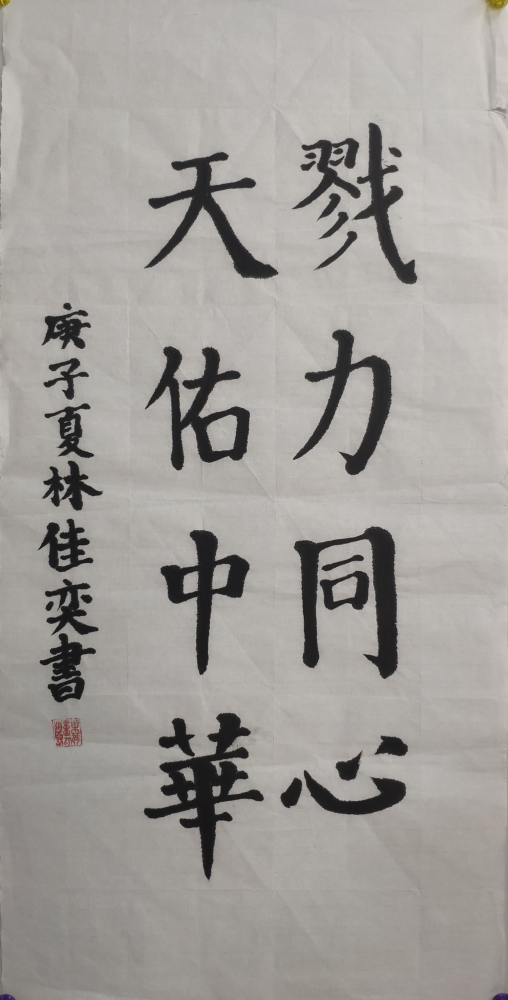 戮力同心
天佑中華
庚子夏林佳奕書